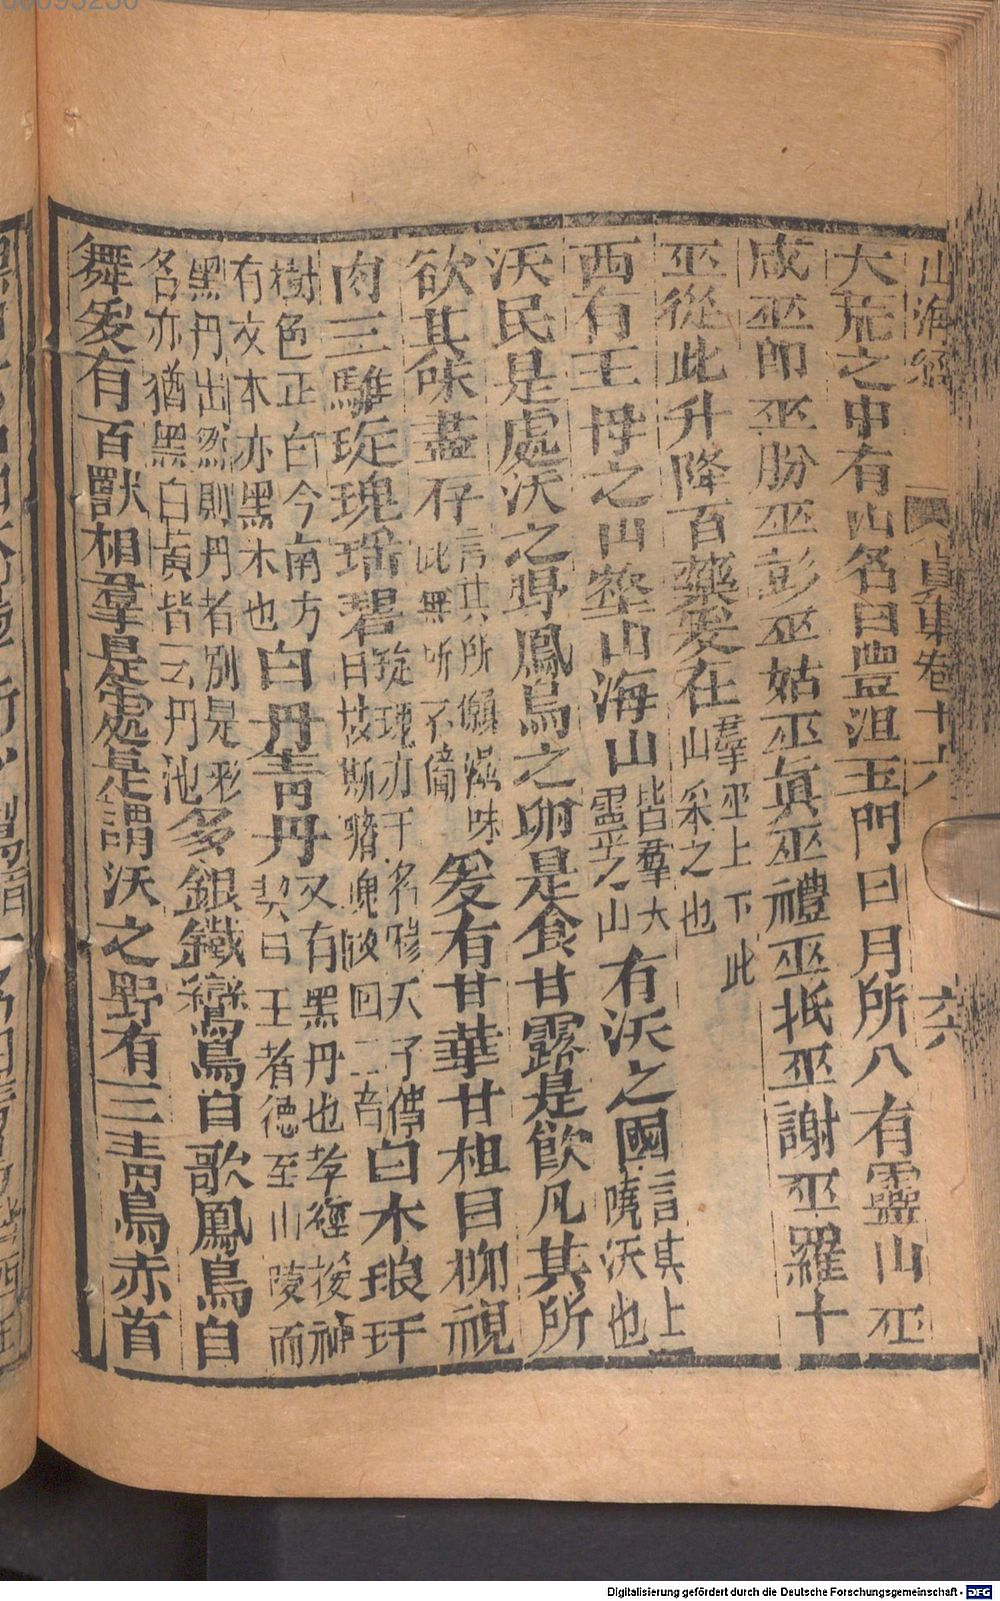 山海經 眞東卷十六 六
大荒之中有山名曰豐沮玉門日月所入有靈山巫
咸巫卽巫肦巫彭巫姑巫眞巫禮巫抵巫謝巫羅十
巫從此升降百藥爰在羣巫上下此山采之也
西有王母之山壑山海山皆羣大靈巫之山有沃之國言其上饒沃也
沃民是處沃之野鳳鳥之卵是食甘露是飲凡其所
欲其味盡存言其所願滋味此無所不備爰有甘華甘柤白栁視
肉三騅琁瑰瑶碧琁瑰亦玉名穆天子傳曰枝斯璿瑰玫回二音白木琅玕
樹色正白今南方有文木亦黑木也白丹靑丹又有黑丹也孝經援神契曰王者德至山陵而
黑丹出然則丹者別是彩名亦猶黑白黃皆云丹也多銀鐵鸞鳥自歌鳳鳥自
舞爰有百獸相羣是處是謂沃之野有三靑鳥赤首
00095256
Digitalisierung gefördert durch die Deutsche Forschungsgemeinschaft - DFG